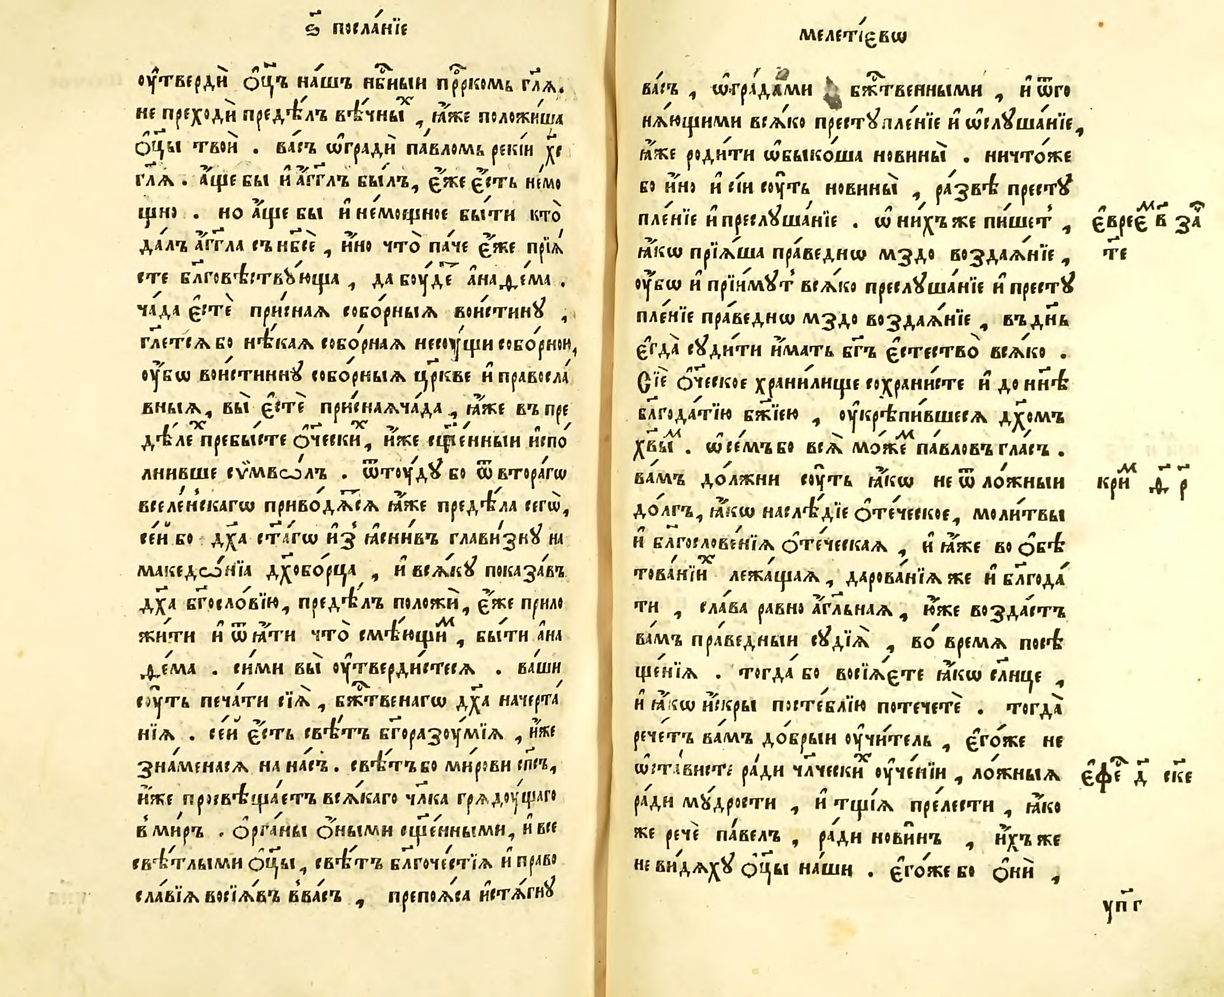 ѕ҃ посла́нїе
оу҆твердѝ ѻ҆ц҃ъ на́шъ нб҇ныи прⷪ҇ркомь гл҃ѧ.
не преходѝ предѣ́лъ вѣ́чныⷯ , ꙗ҆́же положи́ша
ѻ҆ц҃ы твоѝ . ва́съ ѡ҆градѝ па́вломь рекі́и х҃е
гл҃ѧ . а҆́ще бы и҆ а҆́гг҃лъ бы́лъ, є҆́же є҆́сть не́мо
щно . но а҆́ще бы и҆ не́мощное бы́ти кто̀
да́лъ а҆́гг҃ла съ нб҃сѐ , и҆́но что̀ па́че є҆́же прїѧ́
сте бл҃говѣ́ствꙋюща , да бꙋ́деⷮ а҆на́ѳема .
ча́да є҆стѐ при́снаѧ собо́рныѧ вои́стинꙋ ,
гл҃етсѧ бо нѣ́каѧ собо́рнаѧ несоу́щи собо́рнои,
оу҆́бѡ вои́стиннꙋ собо́рныѧ цр҃кве и҆ правосла́
вныѧ, вы̀ є҆стѐ при́снаѧ ча́да , ꙗ҆́же въ пре
дѣ́леⷯ пребы́сте ѻ҆́ческиⷯ , и҆́же сщ҃е́нныи и҆спо́
лнивше сѵ́мвѡлъ . ѿтоу́дꙋ бо ѿ вто́рагѡ
вселе́нскагѡ приво́дѧⷮсѧ ꙗ҆́же предѣ́ла сегѡ̀,
се́й бо дх҃а ст҃а́гѡ и҆з̾ ꙗ҆сни́въ глави́знꙋ на
македѡ́нїа дх҃обо́рца , и҆ всѧ́кꙋ показа́въ
дх҃а бг҃осло́вїю, предѣ́лъ положѝ, є҆́же прило
жи́ти и҆ ѿꙗ҆́ти что̀ смѣ́ющиⷨ , бы́ти а҆на́
ѳема . си́ми вы̀ оу҆твердисте́сѧ . ва́ши
соу́ть печа́ти сїѧ̀ , бж҇твенагѡ дх҃а начерта́
нїѧ . се́й є҆́сть свѣ́тъ бг҃оразоу́мїѧ , и҆́же
зна́менасѧ на на́съ . свѣ́тъ бо ми́рови сп҃съ,
и҆́же просвѣща́етъ всѧ́каго чл҃ка грѧдоу́щаго
в̾ ми́ръ . ѻ҆рга́ны ѻ҆́ными сщ҃е́нными, и҆ все
свѣ́тлыми ѻ҆ц҃ы, свѣ́тъ бл҃гоче́стїѧ и҆ право
сла́вїѧ восїѧ́въ в̾ва́съ , препоѧ́са и҆ стѧ́гнꙋ
меле́тїєвѡ
ва́съ , ѡ҆гра́дами бж҇твенными , и҆ ѿго
нѧ́ющими всѧ́ко престꙋпле́нїе и҆ ѡ҆слꙋша́нїе,
ꙗ҆́же роди́ти ѡ҆быко́ша новины̀ . ничто́же
бо и҆́но и҆ сі́и соу́ть новины̀ , ра́звѣ престꙋ
пле́нїе и҆ преслꙋша́нїе . ѡ҆ ни́хъ же пи́шет̾ ,
ꙗ҆́кѡ прїѧ́ша пра́веднѡ мздо воздаѧ́нїе ,
оу҆́бѡ и҆ прїи́мꙋт̾ всѧ́ко преслꙋша́нїе и҆ престꙋ
пле́нїе пра́веднѡ мздо воздаѧ́нїе , въ дн҃ь
є҆гда̀ сꙋди́ти и҆́мать бг҃ъ є҆стество̀ всѧ́ко .
Сїѐ ѻ҆́ч҃еское храни́лище сохрани́сте и҆ до нн҃ѣ
бл҃года́тїю бж҃їею , оу҆крѣпи́вшесѧ дх҃омъ
хв҃ыⷨ . ѡ҆ се́мъ бо всѧ̀ мо́жеⷨ па́вловъ гла́съ .
ва́мъ до́лжни соу́ть ꙗ҆́кѡ не ѿ ло́жныи
до́лгъ, ꙗ҆́кѡ наслѣ́дїе ѻ҆те́ческое, моли́твы
и҆ благослове́нїѧ ѻ҆те́ческаѧ , и҆ ꙗ҆́же во ѻ҆бѣ
това́нїиⷯ лежа́щаѧ , дарова́нїѧ же и҆ бл҃года́
ти , сла́ва равно а҆́гг҃льнаѧ , ю҆́же возда́стъ
ва́мъ пра́ведныи сꙋдїѧ̀ , во́ время посѣ
ще́нїѧ . тогда́ бо восїѧ́єте ꙗ҆́кѡ сл҃нце ,
и҆ ꙗ҆́кѡ и҆́скры постє́блїю потечетѐ . тогда̀
рече́тъ ва́мъ до́брыи оу҆чи́тель , є҆го́же не
ѡ҆ста́висте ра́ди чл҃ческиⷯ оу҆че́нїи , ло́жныѧ
ра́ди мꙋ́дрости , и҆ тщі́ѧ пре́лести , ꙗ҆́ко
же речѐ па́вел , ра́ди нови́нъ , и҆́хъ же
не ви́дѧхꙋ ѻ҆ц҃ы на́ши . є҆го́же бо ѻ҆нѝ ,
є҆вре́єⷨ в҃ заⷱ҇
те
криⷨ ѳ҃ р҃
є҆фе҇ д҃ ске
уп҃г